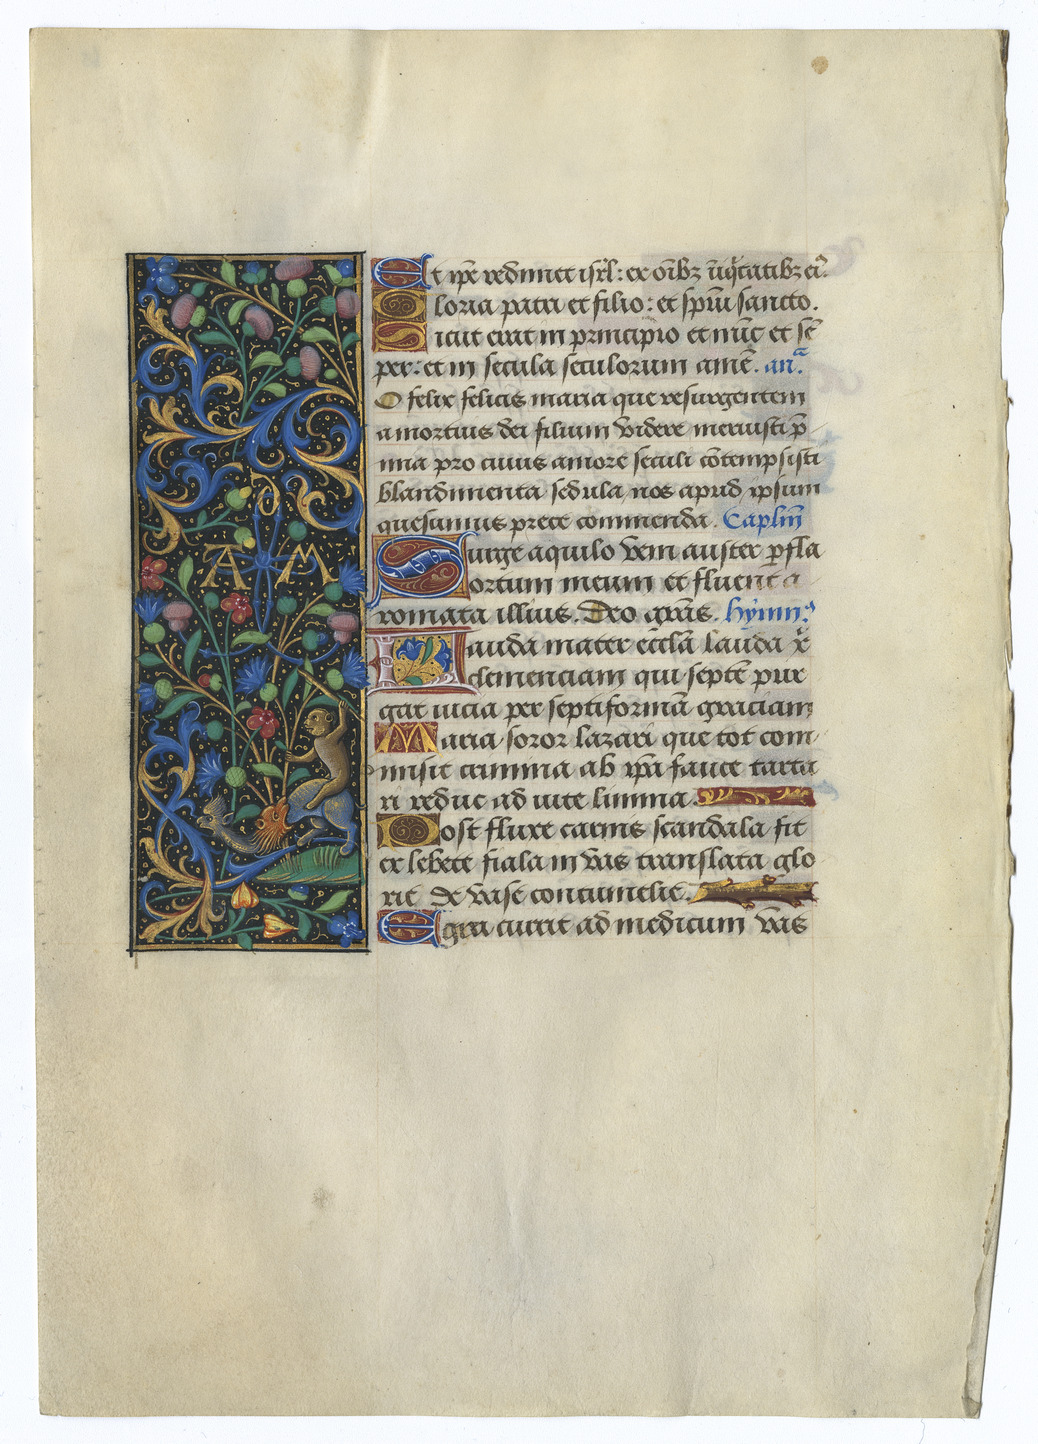 A M
Et ip̄e redimet isr̄l: ex oīb⁊ īiq̄tatib⁊ ei⁹.
Gloria patri et filio: et sp̄ui sancto.
Sicut erat in principio et nūc et sē
per: et in secula seculorum amē. an̄.
O felix felicis maria que resurgentem
a mortuis dei filium videre meruisti p̄
ma pro cuius amore seculi cōtempsisti
blandimenta sedula nos apud ipsum
quesumus prece commenda. Caplm̄
Surge aquilo veni auster ꝑfla
ortum meum et fluent a
romata illius. Deo grās. hymn⁹
Lauda mater eccl̄ia lauda x̄
clemenciam qui septē pur
gat uicia per septiformā graciam
Maria soror lazari que tot com
misit crimina ab ip̄a fauce tarta
ri redit ad uite limina.
Post fluxe carnis scandala fit
ex lebete fiala in vas translata glo
rie de vase contumelie.
Egra currit ad medicum vas